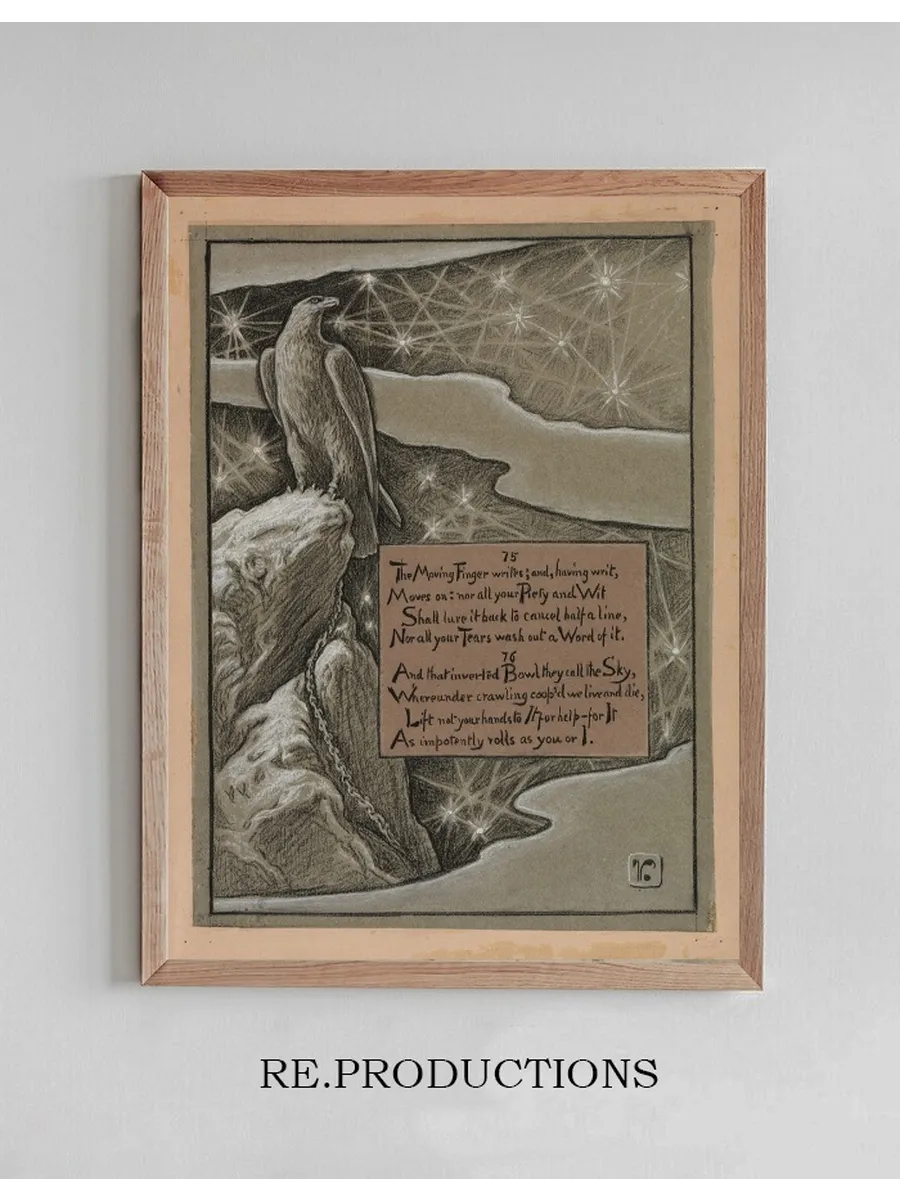 75
The Moving Finger writes; and, having writ,
Moves on: nor all your Piety and Wit
Shall lure it back to cancel half a line,
Nor all your Tears wash out a Word of it.
76
And that inverted Bowl they call the Sky,
Whereunder crawling coop'd we live and die,
Lift not your hands to It for help–for It
As impotently rolls as you or I.
RE.PRODUCTIONS